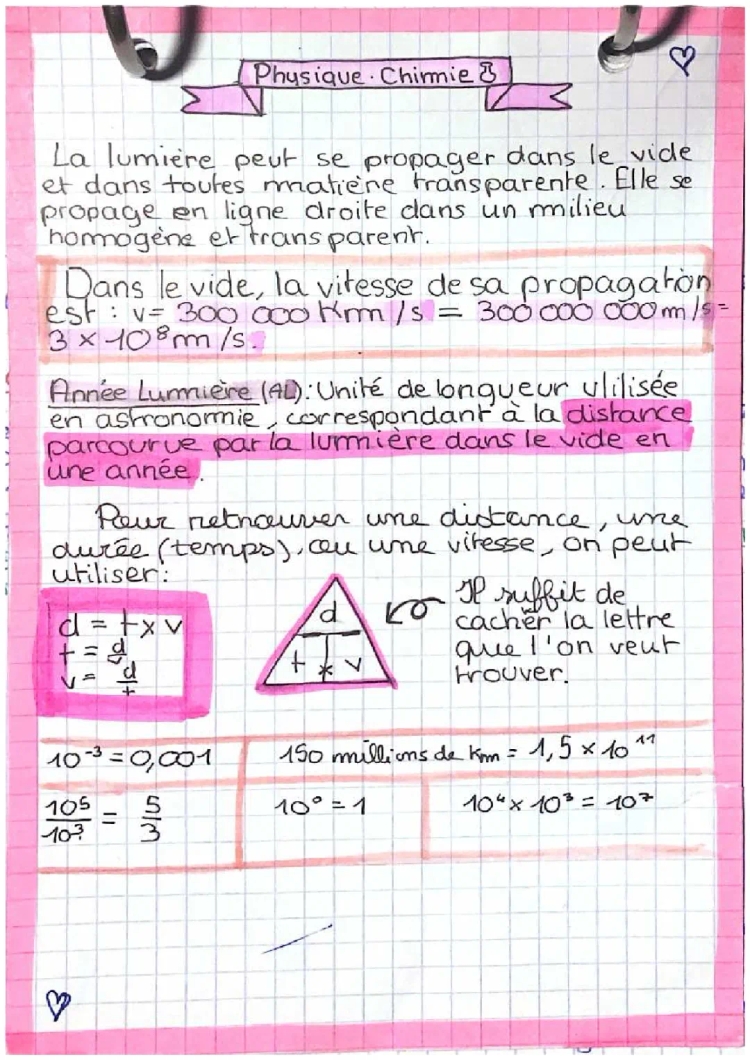 Physique. Chimie
La lumière peut se propager dans le vide
et dans toutes matière transparente. Elle se
propage en ligne droite dans un milieu
homogène et transparent.
Dans le vide, la vitesse de sa propagation
est : v= 300 000 Km/s = 300 000 000 m/s =
3 × 10⁸ m/s.
Année Lumière (AL): Unité de longueur utilisée
en astronomie, correspondant à la distance
parcourue par la lumière dans le vide en
une année.
Pour retrouver une distance, une
durée (temps), ou une vitesse, on peut
utiliser:
d = t x v
t = d/v
v = d/t
d
t x v
Il suffit de
cacher la lettre
que l'on veut
trouver.
10⁻³ = 0,001
150 millions de Km = 1,5 × 10¹¹
10⁵/10³ = 5/3
10⁰ = 1
10⁴ × 10³ = 10⁷